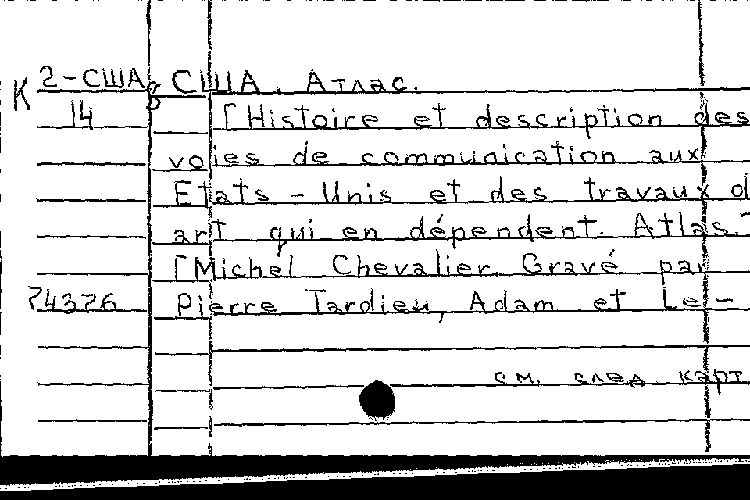 К 2-США 8 США. Атлас.
14 [Histoire et description des
voies de communication aux
Etats-Unis et des travaux d
art qui en dépendent. Atlas.]
[Michel Chevalier. Gravé par
74376 Pierre Tardieu, Adam et Le-
см. след. карт